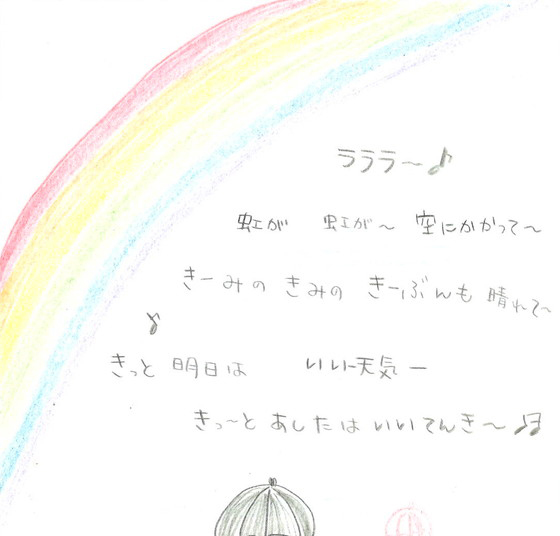 ラララ～♪
虹が 虹が～ 空にかかって～
きーみの きみの きーぶんも 晴れて～
♪
きっと 明日は いい天気ー
きっ～と あしたは いいてんき～♫